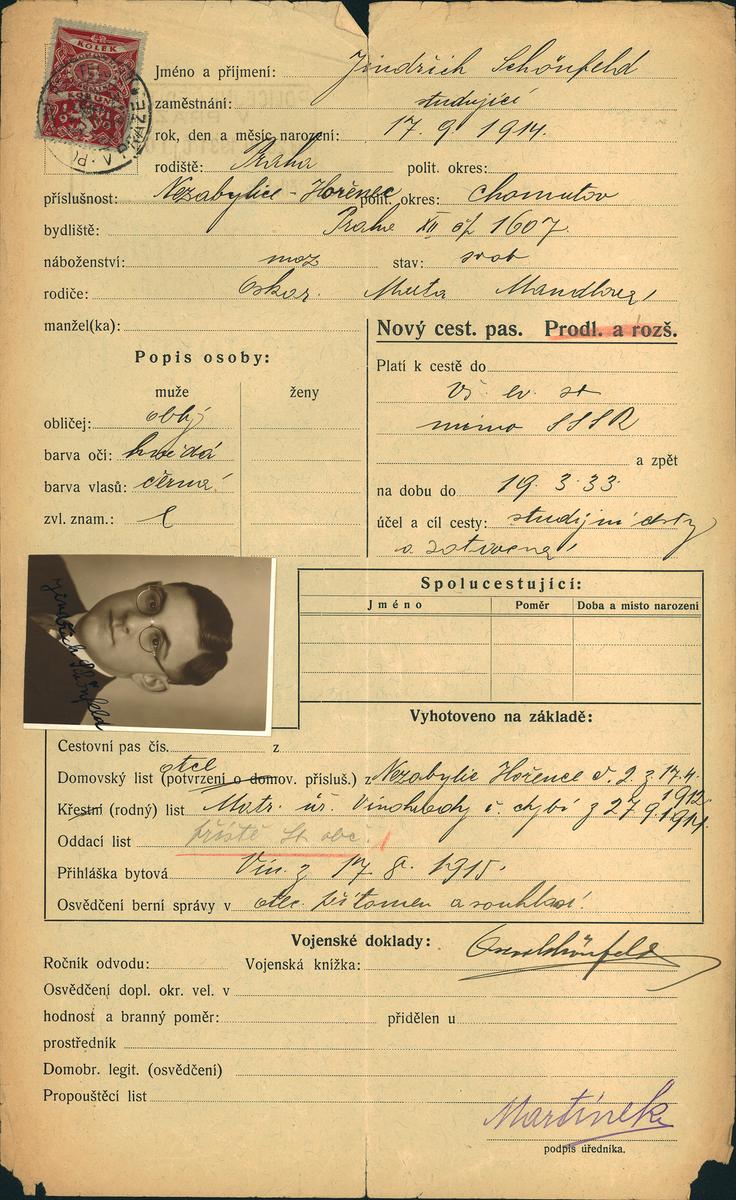 KOLEK
Jméno a příjmení: Jindřich Schönfeld
zaměstnání: studující
rok, den a měsíc narození: 17. 9. 1914.
rodiště: Praha polit. okres:
příslušnost: Nezabylice - Hořenec polit. okres: Chomutov
bydliště: Praha XII čp 1607.
náboženství: moz stav: svob
rodiče: Oskar. Marta
manžel(ka):
Nový cest. pas. Prodl. a rozš.
Popis osoby:
muže ženy
obličej: oblý
barva očí: hnědá
barva vlasů: černá
zvl. znam.:
Platí k cestě do
vš. ev. st
mimo SSSR
a zpět
na dobu do 19. 3. 33.
účel a cíl cesty: studijní cesty
a zotavená
Jindřich Schönfeld
Spolucestující:
Jméno Poměr Doba a místo narození
Vyhotoveno na základě:
Cestovní pas čís. z
otce
Domovský list (potvrzení o domov. přísluš.) z Nezabylic Hořenec č. 2. z 17.4.
1912
Křestní (rodný) list Matr. úř. Vinohrady č. chybí z 27 9 1914.
Oddací list příště st. obč.
Přihláška bytová Vin. z 17 8. 1915.
Osvědčení berní správy v otec přítomen a souhlasí
Vojenské doklady:
Ročník odvodu: Vojenská knížka:
Osvědčení dopl. okr. vel. v
hodnost a branný poměr: přidělen u
prostředník
Domobr. legit. (osvědčení)
Propouštěcí list
Martínek
podpis úředníka.